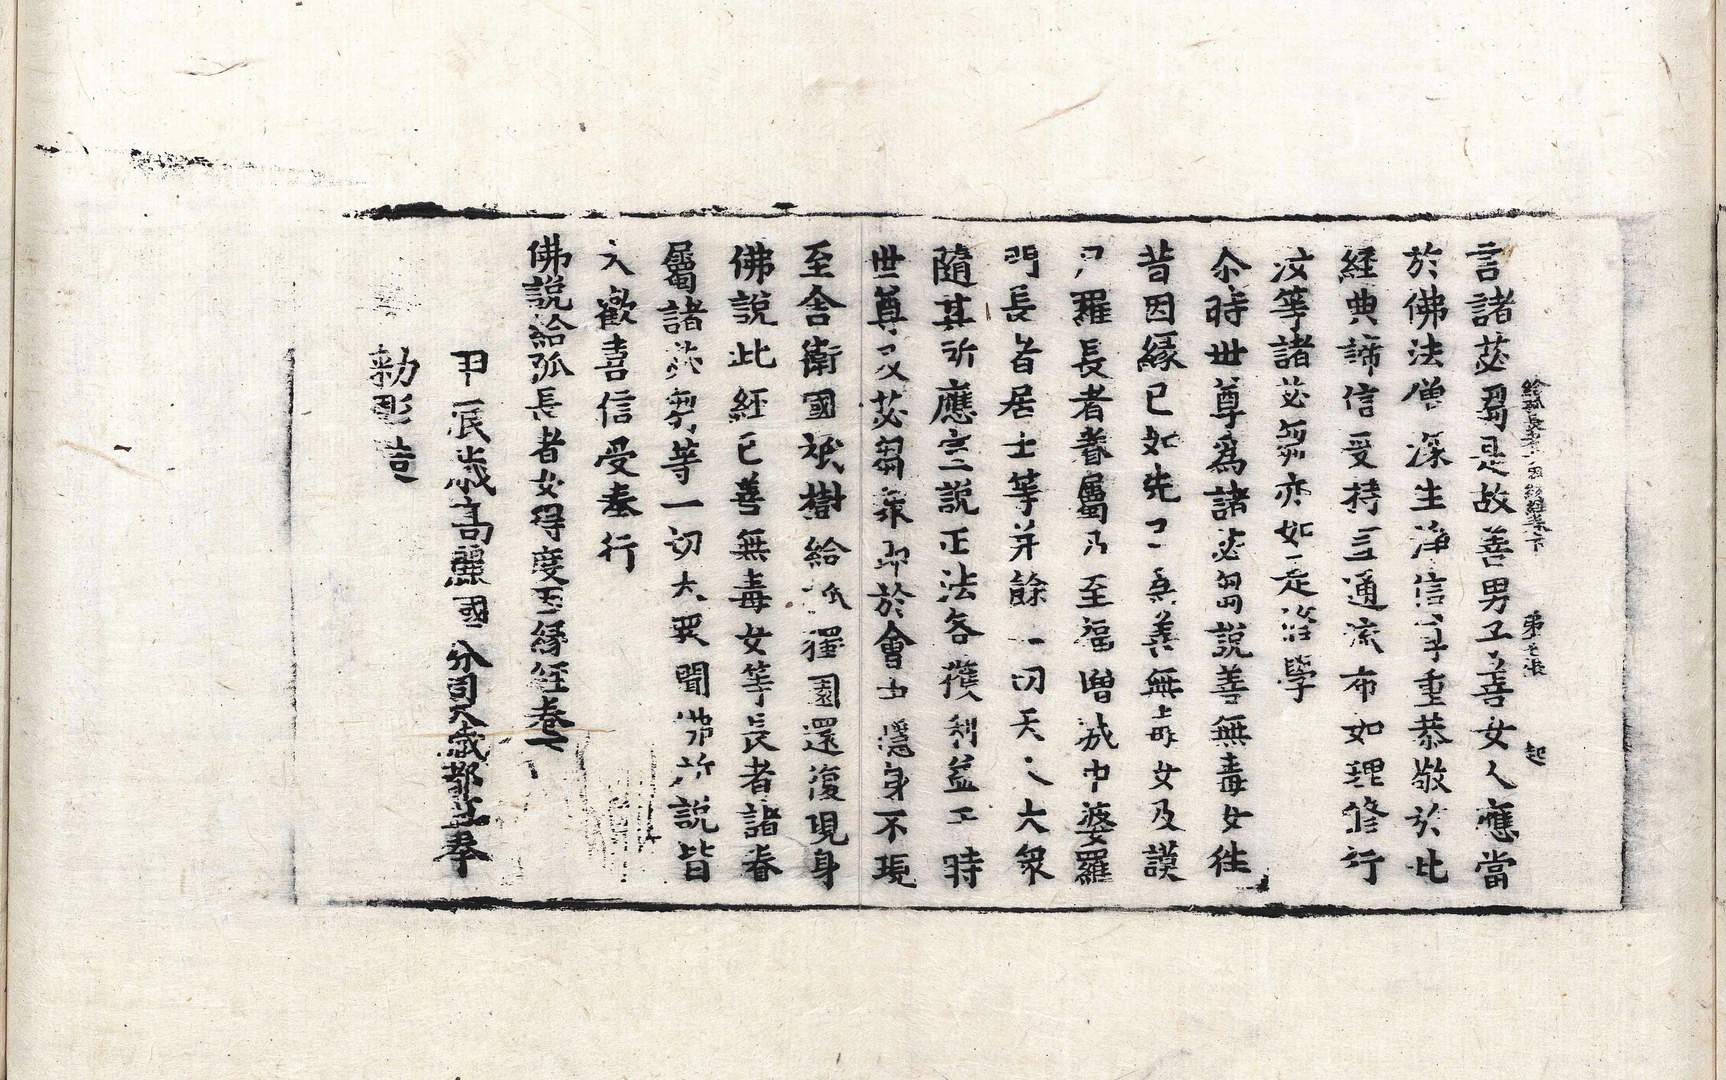 給孤長者女經卷下 第七張 起
言諸苾芻是故善男子善女人應當
於佛法僧深生淨信尊重恭敬於此
經典諦信受持互通流布如理修行
汝等諸苾芻亦如是學
尒時世尊爲諸苾芻說善無毒女往
昔因緣已如先善無毒女及謨
尸羅長者眷屬乃至福增城中婆羅
門長者居士等幷餘一切天人大衆
隨其所應宣說正法各獲利益
時
世尊及苾芻衆卽於會中隱身不現
至舍衛國祇樹給孤獨園還復現身
佛說此經已善無毒女等長者諸眷
屬諸苾芻等一切大衆聞佛所說皆
大歡喜信受奉行
佛說給孤長者女得度因緣經卷下
甲辰歲高麗國分司大藏都監奉
勅彫造